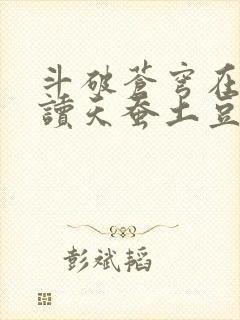 斗破苍穹在
讀天蚕土豆
彭斌韬